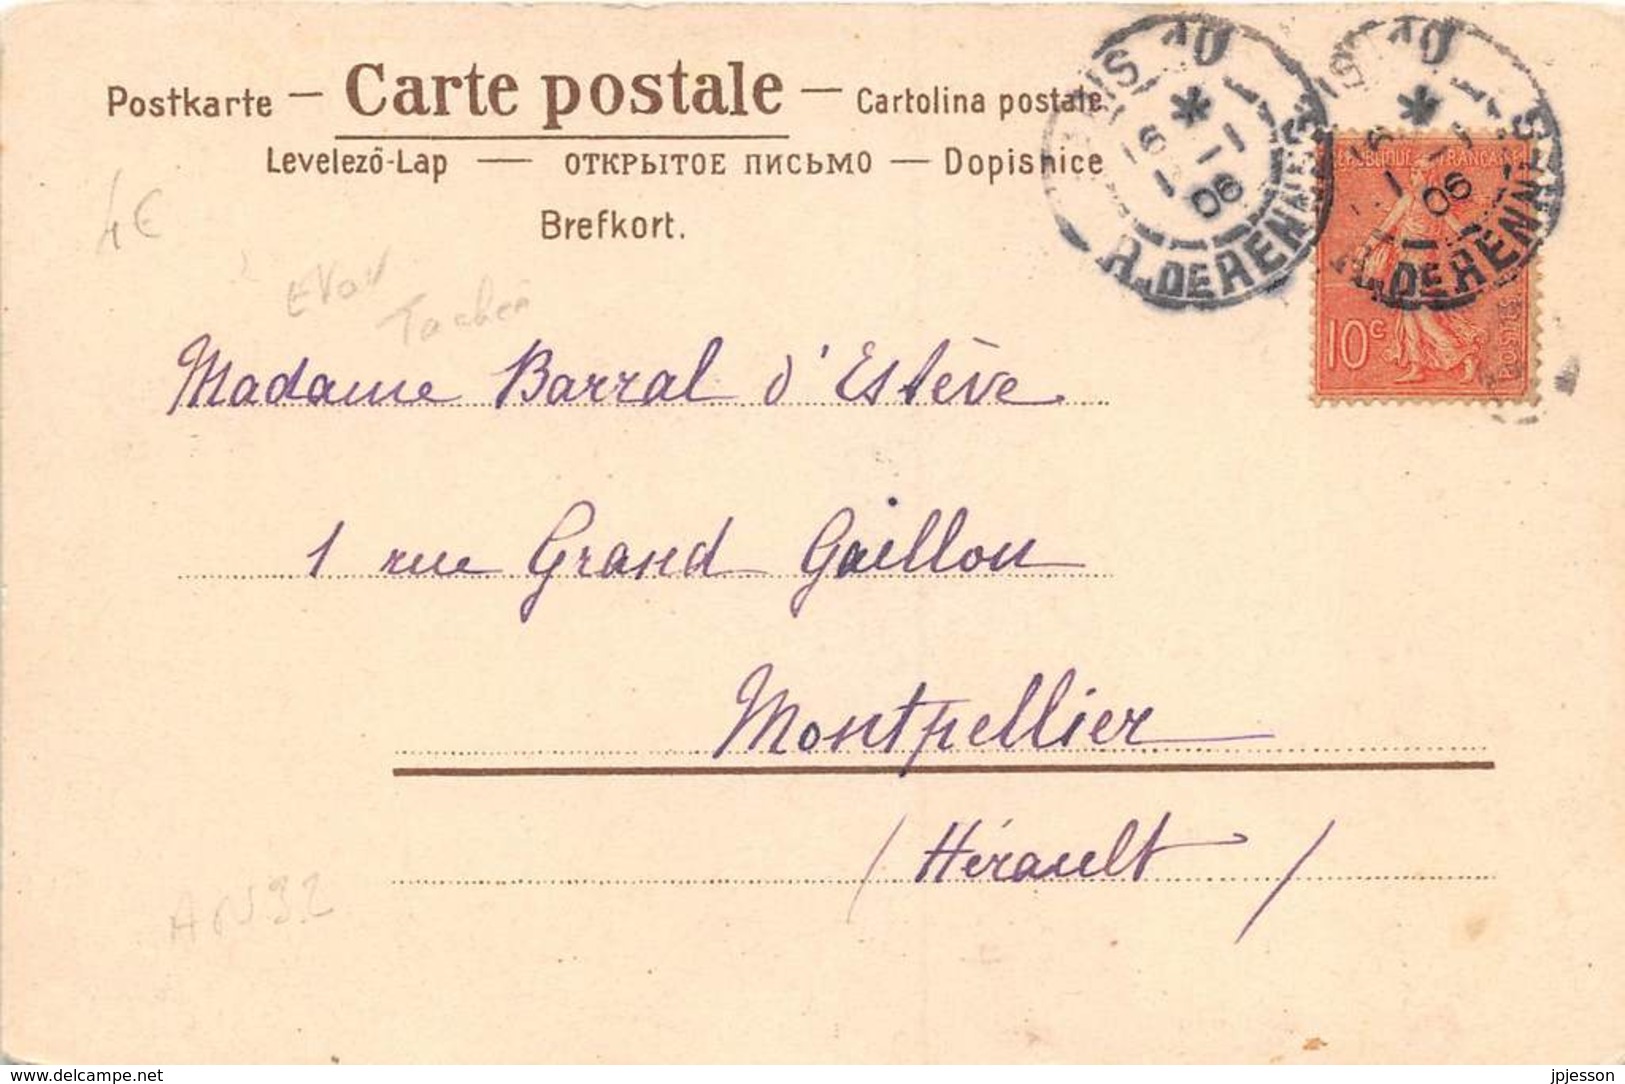 Postkarte — Carte postale — Cartolina postale
Levelező-Lap — ОТКРЫТОЕ ПИСЬМО — Dopisnice
Brefkort.
4€
Madame Barral d'Estève
1 rue Grand Gaillon
Montpellier
(Hérault)
REPUBLIQUE FRANÇAISE
10c
POSTES
R. DE RENNES
16
1-1
06
R. DE RENNES
16
1-1
06
www.delcampe.net
jpjesson